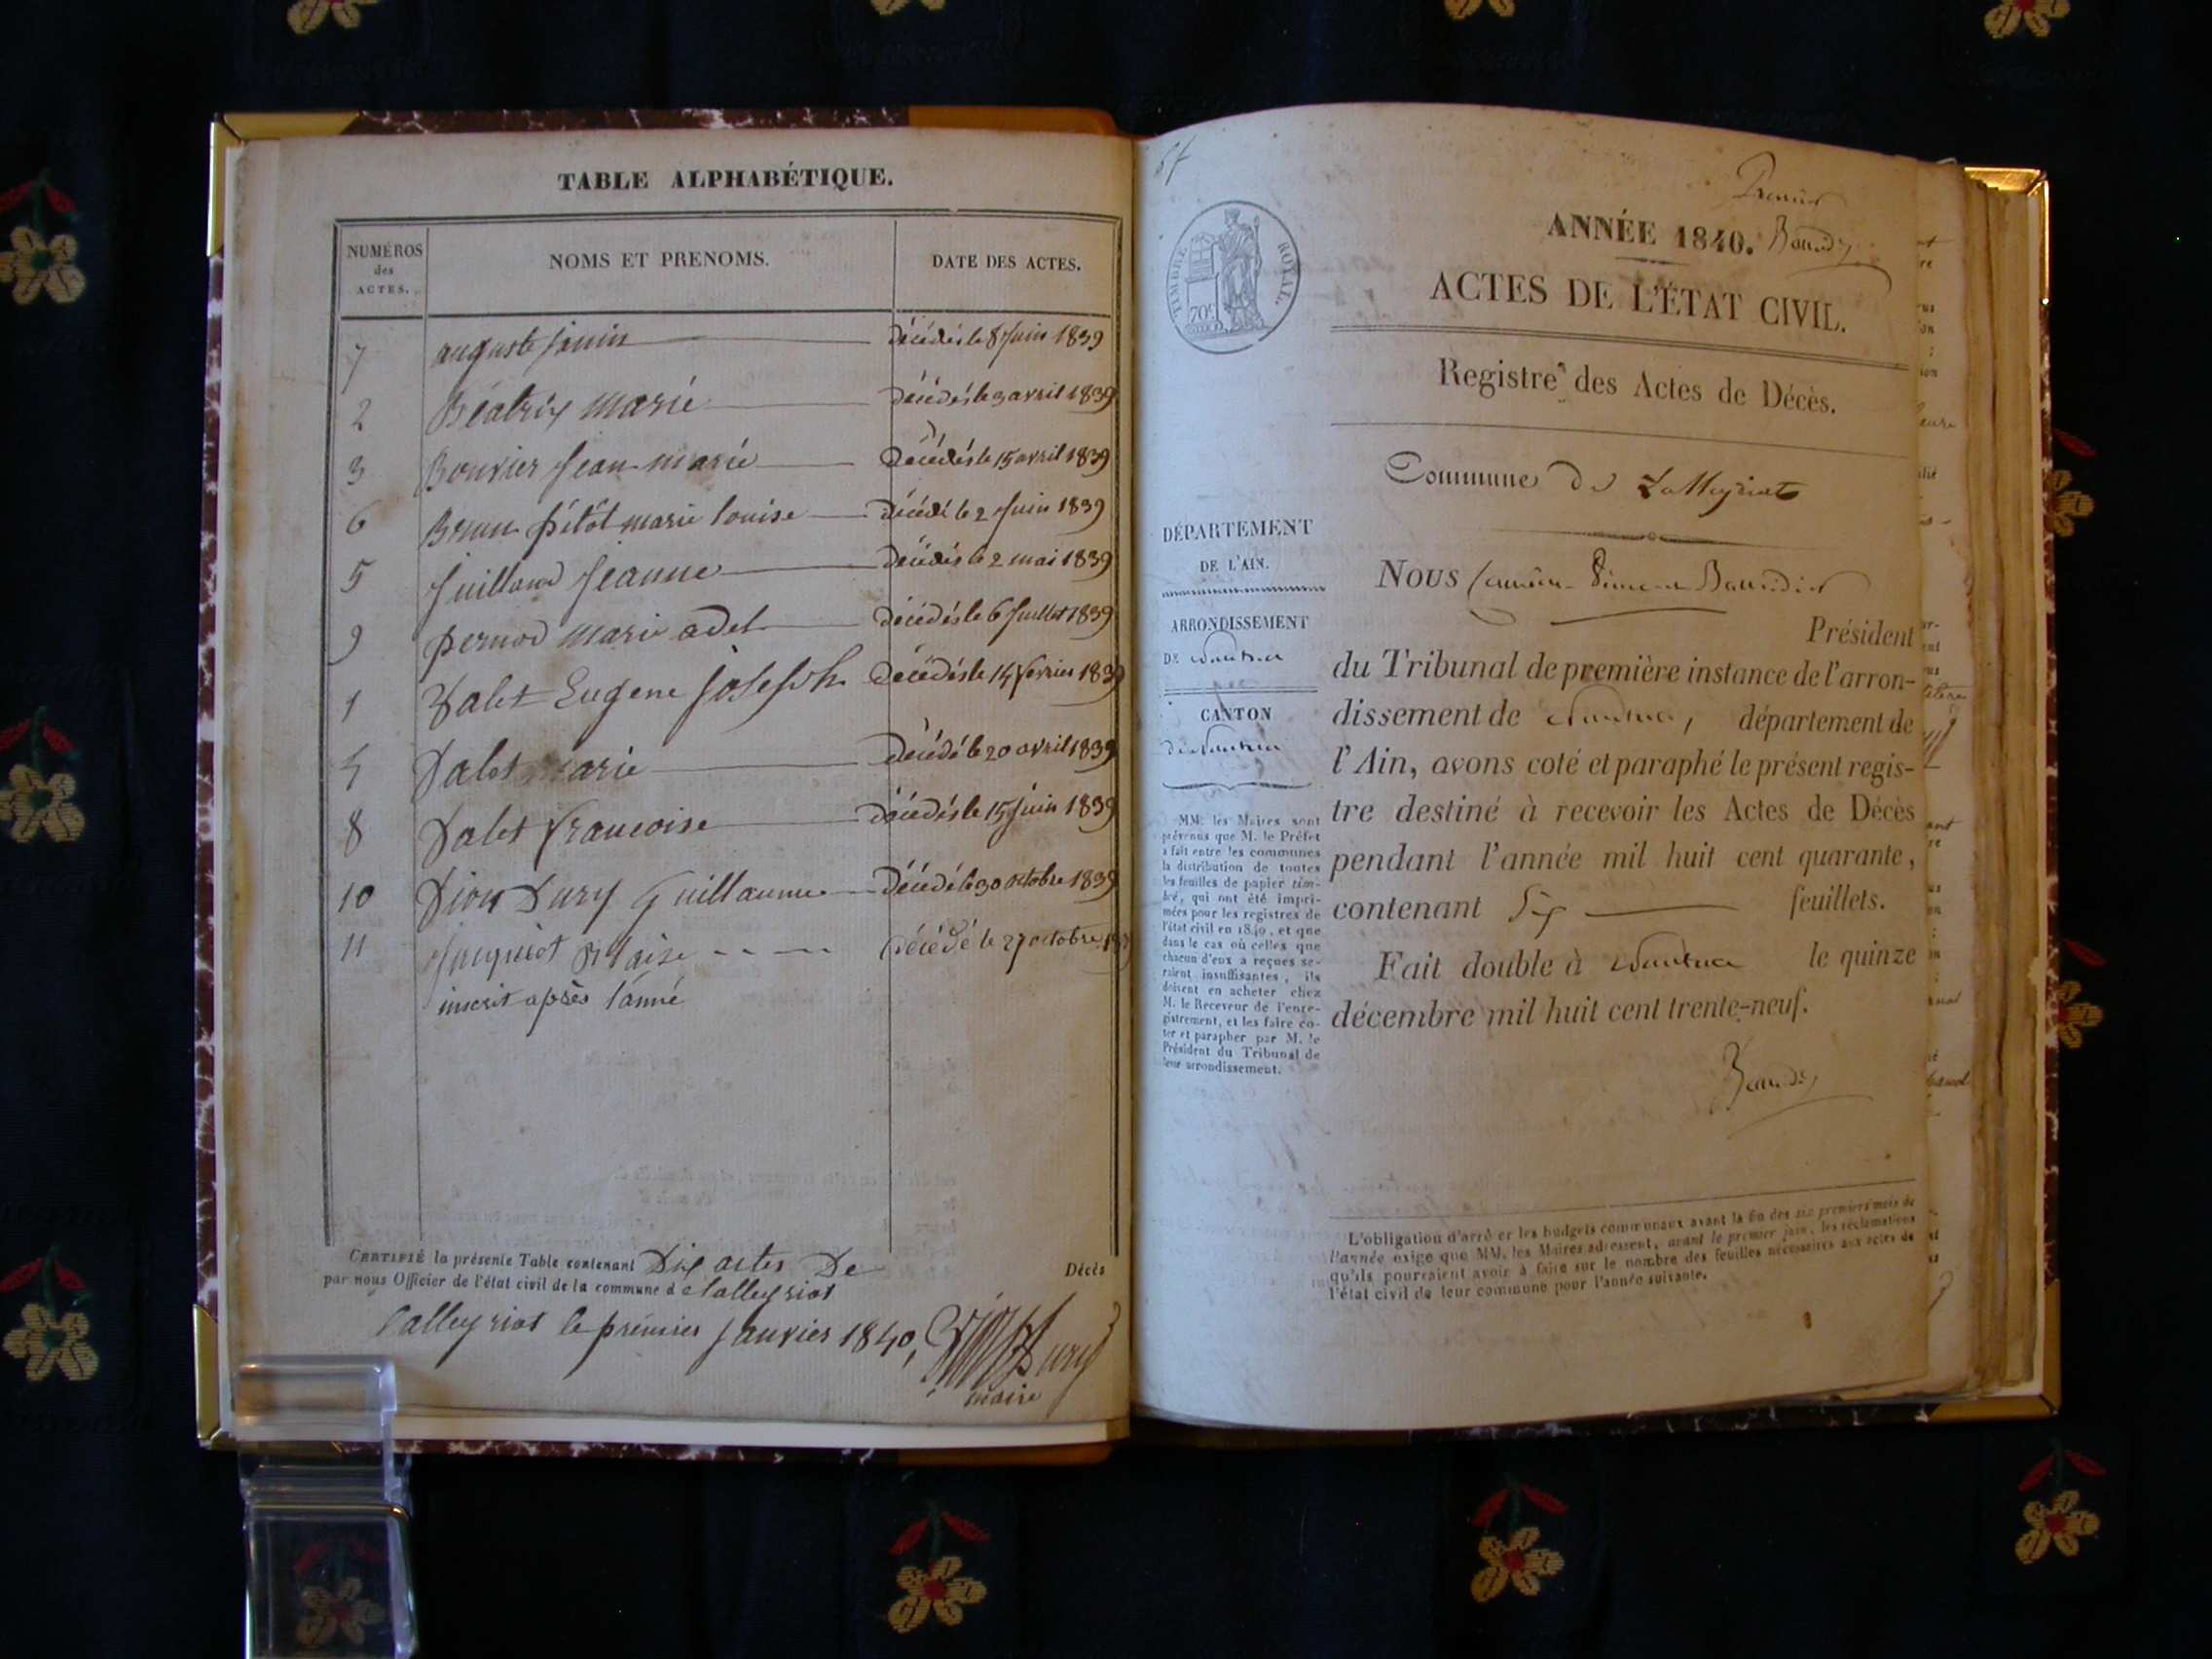 TABLE ALPHABÉTIQUE.
NUMÉROS
des
ACTES.
NOMS ET PRENOMS.
DATE DES ACTES.
7 auguste décédés le 8 Juin 1839
2 Béatrix marié décédés le 3 avril 1839
3 Bouvier Jean marie décédés le 15 avril 1839
6 Brun pétôt marie louise décédé le 2 Juin 1839
5 Juilland Jeanne décédés le 2 mai 1839
9 pernod marie adel décédés le 6 Juillet 1839
1 Valet Eugene Joseph décédés le 14 fevrier 1839
4 Valet marie décédé le 20 avril 1839
8 Valet francoise décédés le 15 Juin 1839
10 Dury Guillaume décédé le 30 octobre 1839
11 Blaise décédé le 27 octobre
inscrit après l'anné
CERTIFIÉ la présente Table contenant Dix actes De Décès
par nous Officier de l'état civil de la commune de lalleyriat
lalleyriat le prémier Janvier 1840,
maire
TIMBRE ROYAL.
70c
Premier
ANNÉE 1840.
ACTES DE L'ÉTAT CIVIL.
Registre des Actes de Décès.
Commune de Lalleyriat
DÉPARTEMENT
DE L'AIN.
ARRONDISSEMENT
DE Nantua
CANTON
de Nantua
MM. les Maires sont
prévenus que M. le Préfet
a fait entre les communes
la distribution de toutes
les feuilles de papier tim-
bré, qui ont été impri-
mées pour les registres de
l'état civil en 1840, et que
dans le cas où celles que
chacun d'eux a reçues se-
raient insuffisantes, ils
doivent en acheter chez
M. le Receveur de l'enre-
gistrement, et les faire co-
ter et parapher par M. le
Président du Tribunal de
leur arrondissement.
NOUS
Président
du Tribunal de première instance de l'arron-
dissement de Nantua, département de
l'Ain, avons coté et paraphé le présent regis-
tre destiné à recevoir les Actes de Décès
pendant l'année mil huit cent quarante,
contenant Six feuillets.
Fait double à Nantua le quinze
décembre mil huit cent trente-neuf.
L'obligation d'arrêter les budgets communaux avant la fin des six premiers mois de
l'année exige que MM. les Maires adressent, avant le premier juin, les réclamations
qu'ils pourraient avoir à faire sur le nombre des feuilles nécessaires aux actes de
l'état civil de leur commune pour l'année suivante.